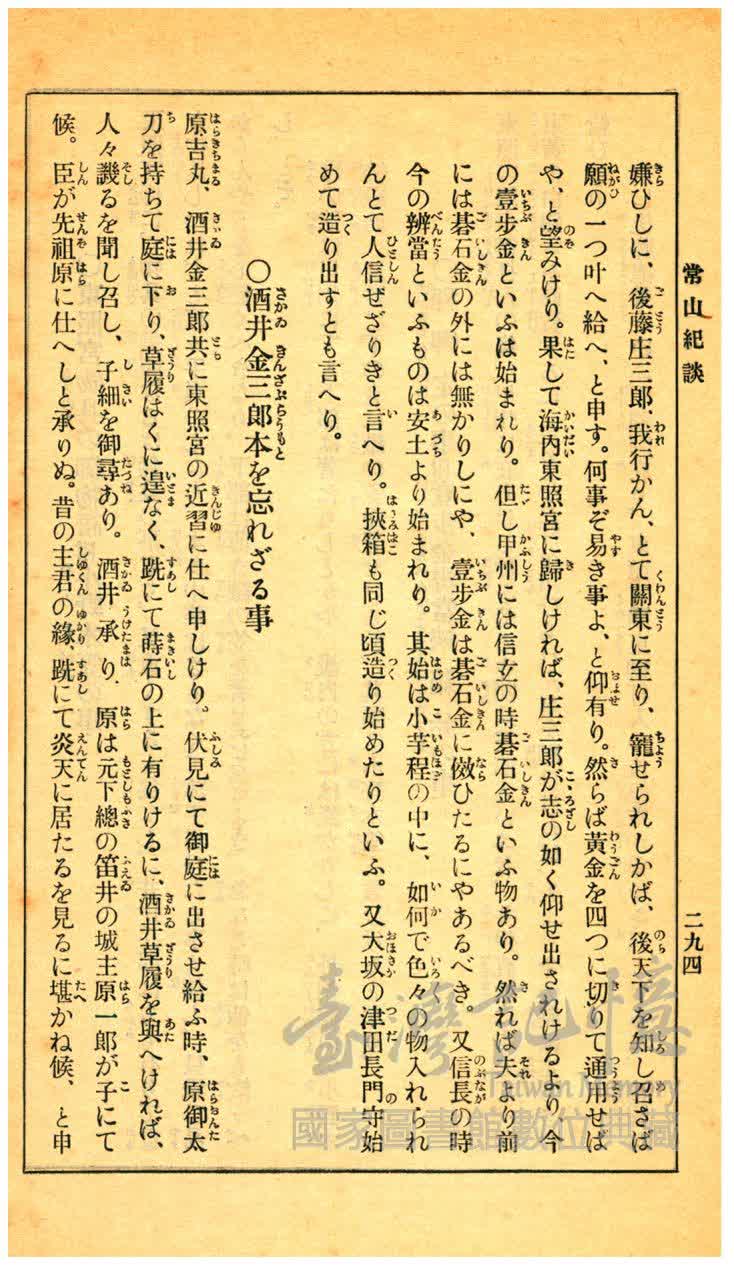 常山紀談
二九四
嫌ひしに、後藤庄三郎、我行かん、とて關東に至り、寵せられしかば、後天下を知し召さば
願の一つ叶へ給へ、と申す。何事ぞ易き事よ、と仰有り。然らば黃金を四つに切りて通用せば
や、と望みけり。果して海內東照宮に歸しければ、庄三郎が志の如く仰せ出されけるより、今
の壹步金といふは始まれり。但し甲州には信玄の時碁石金といふ物あり。然れば夫より前
には碁石金の外には無かりしにや、壹步金は碁石金に傚ひたるにやあるべき。又信長の時
今の辨當といふものは安土より始まれり。其始は小芋程の中に、如何で色々の物入れられ
んとて人信ぜざりきと言へり。挾箱も同じ頃造り始めたりといふ。又大坂の津田長門守始
めて造り出すとも言へり。
〇酒井金三郎本を忘れざる事
原吉丸、酒井金三郎共に東照宮の近習に仕へ申しけり。伏見にて御庭に出させ給ふ時、原御太
刀を持ちて庭に下り、草履はくに遑なく、跣にて蒔石の上に有りけるに、酒井草履を與へければ、
人々譏るを聞し召し、子細を御尋あり。酒井承り、原は元下總の笛井の城主原一郎が子にて
候。臣が先祖原に仕へしと承りぬ。昔の主君の緣、跣にて炎天に居たるを見るに堪かね候、と申
臺灣記憶
Taiwan Memory
國家圖書館數位典藏